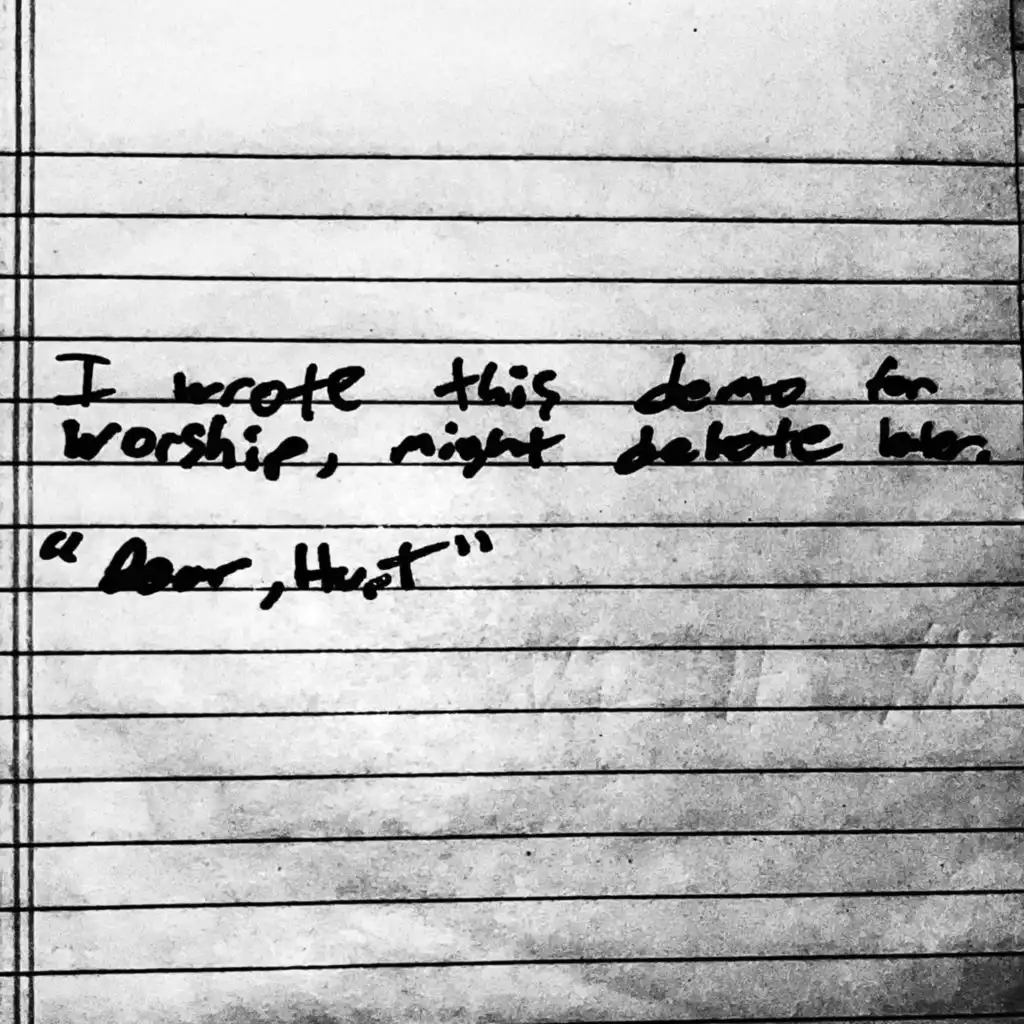 I wrote this demo for
worship, might delete later.
"Dear, Hurt"